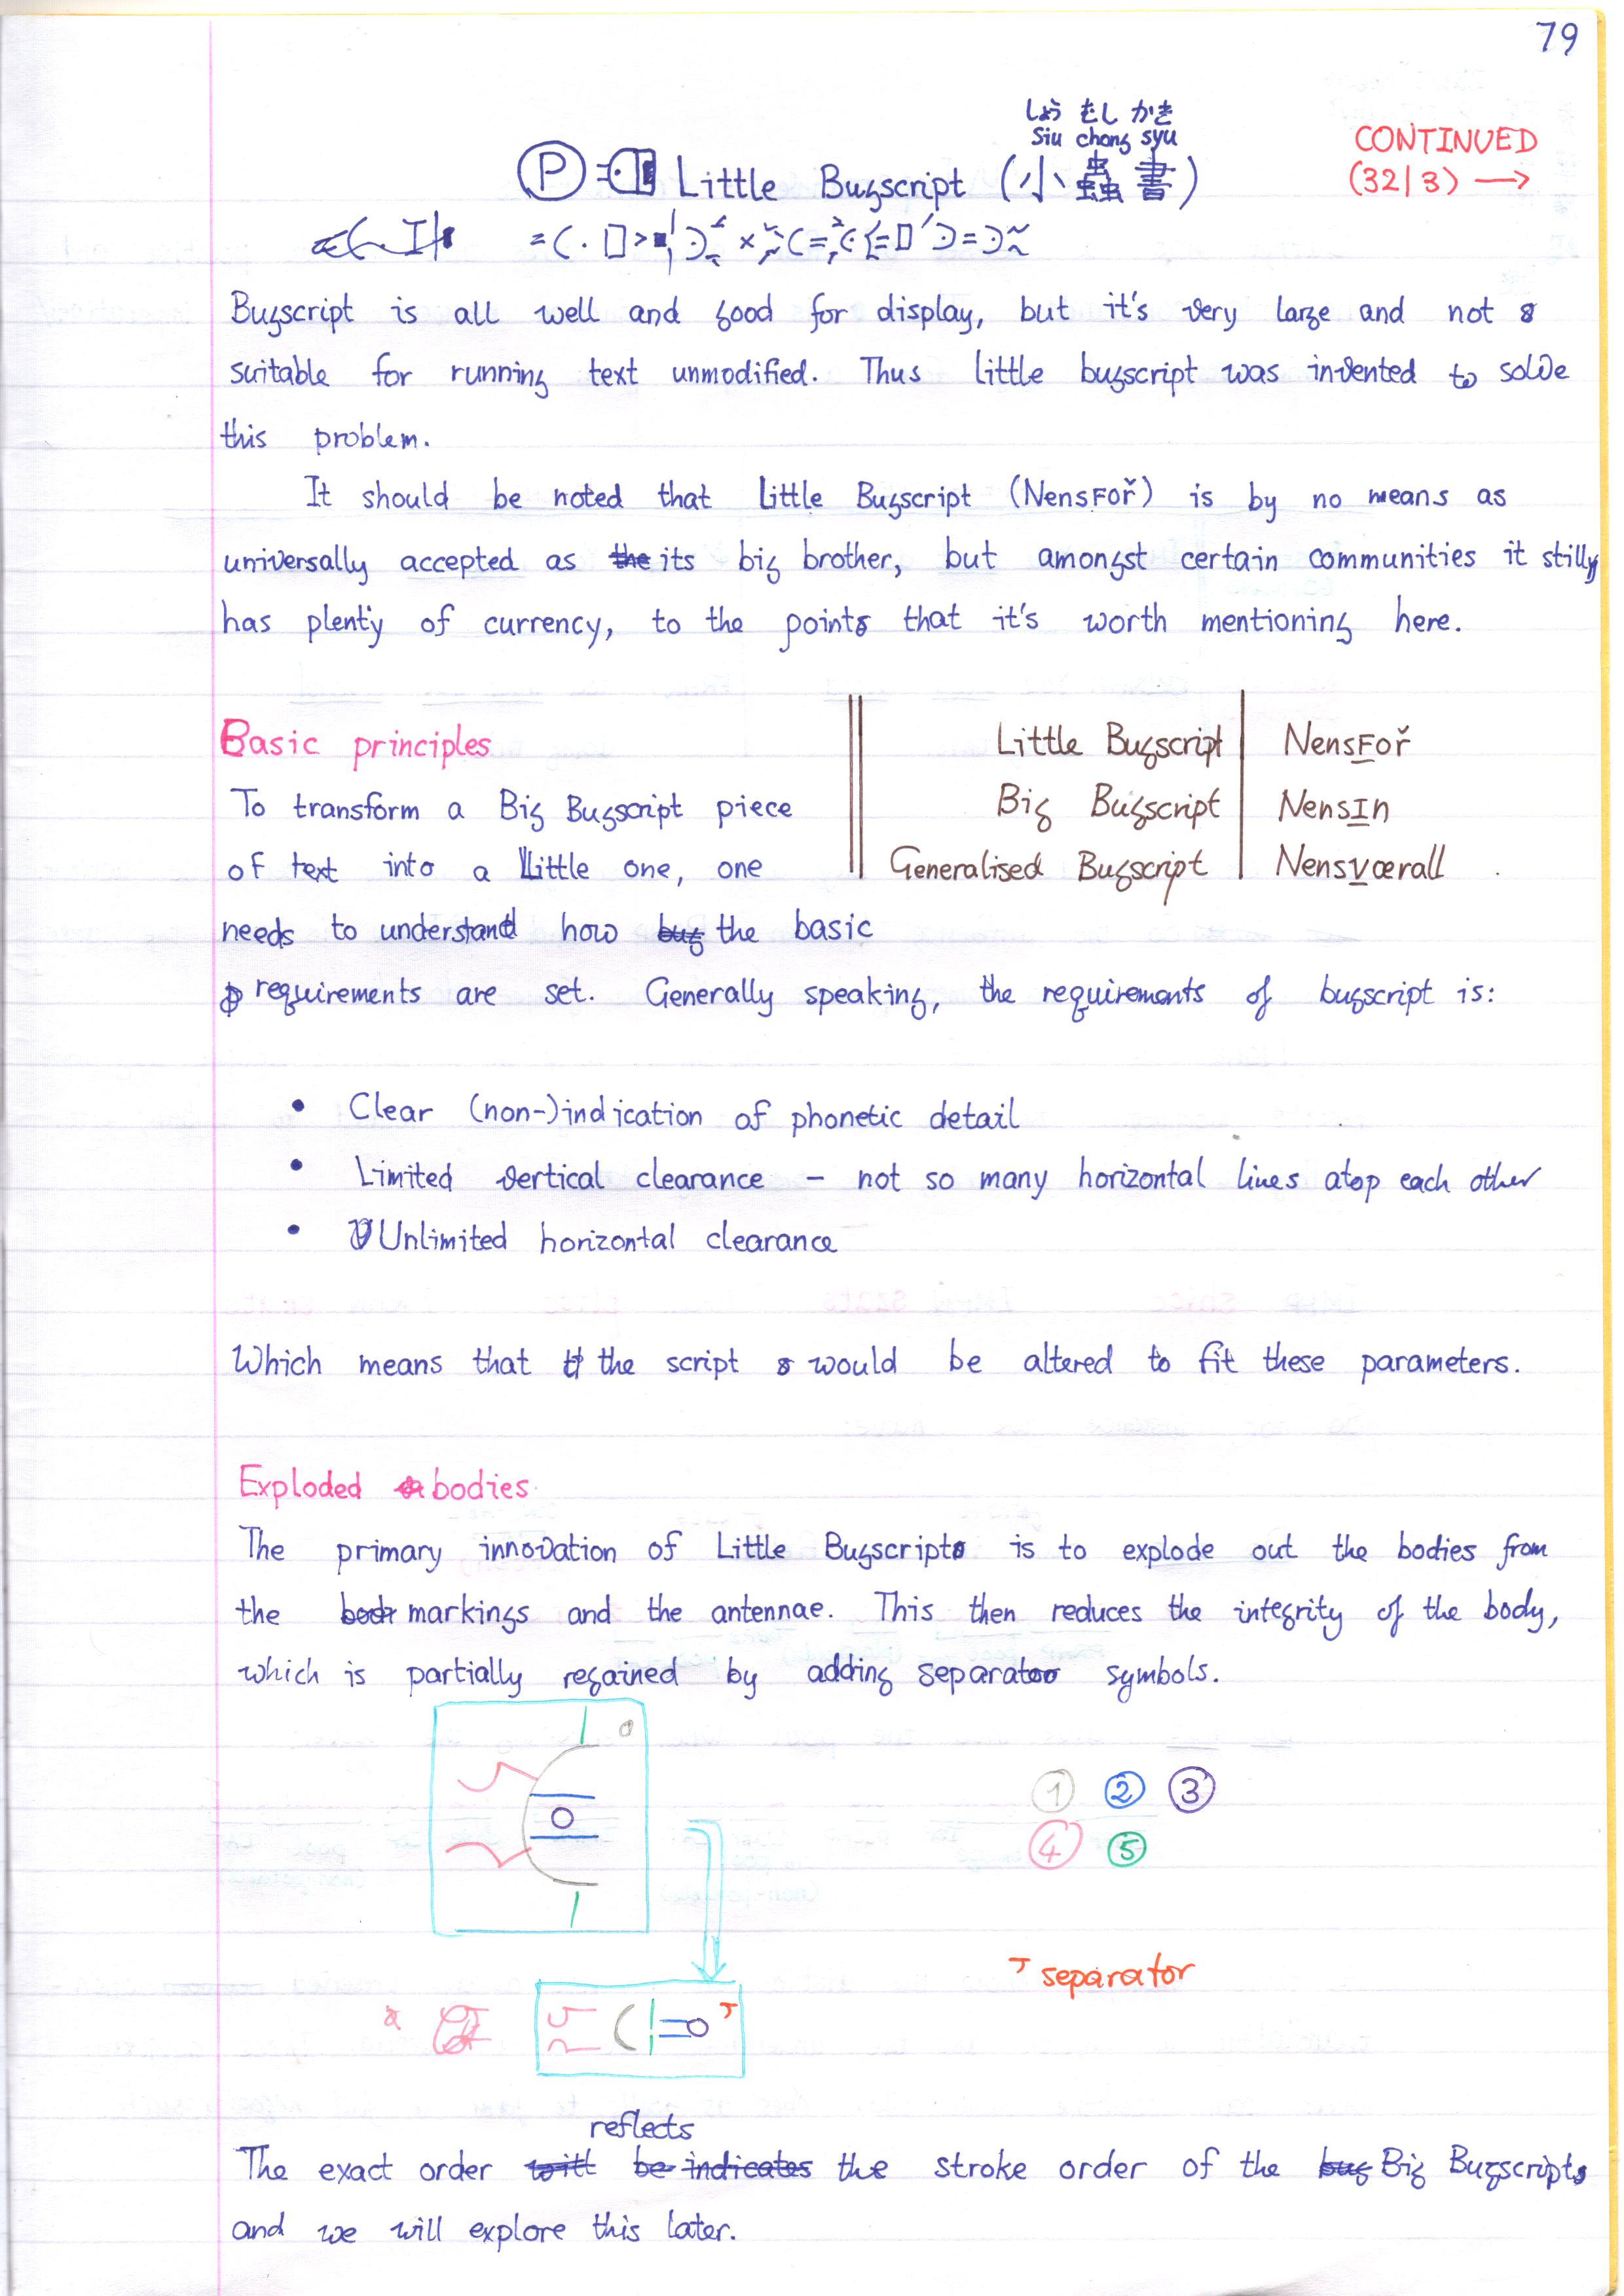 79
しょう むし かき
Siu chong syu
P Little Bugscript (小蟲書)
CONTINUED
(32|3) →
Bugscript is all well and good for display, but it's very large and not
suitable for running text unmodified. Thus little bugscript was invented to solve
this problem.
It should be noted that Little Bugscript (NensFoř) is by no means as
universally accepted as the its big brother, but amongst certain communities it still
has plenty of currency, to the point that it's worth mentioning here.
Basic principles
Little Bugscript | NensFoř
Big Bugscript | NensIn
Generalised Bugscript | NensVærall
To transform a Big Bugscript piece
of text into a Little one, one
needs to understand how bug the basic
requirements are set. Generally speaking, the requirements of bugscript is:
• Clear (non-)indication of phonetic detail
• Limited vertical clearance – not so many horizontal lines atop each other
• Unlimited horizontal clearance
Which means that the script would be altered to fit these parameters.
Exploded bodies
The primary innovation of Little Bugscript is to explode out the bodies from
the markings and the antennae. This then reduces the integrity of the body,
which is partially regained by adding separator symbols.
1 2 3
4 5
separator
reflects
The exact order will be indicates the stroke order of the bug Big Bugscript
and we will explore this later.